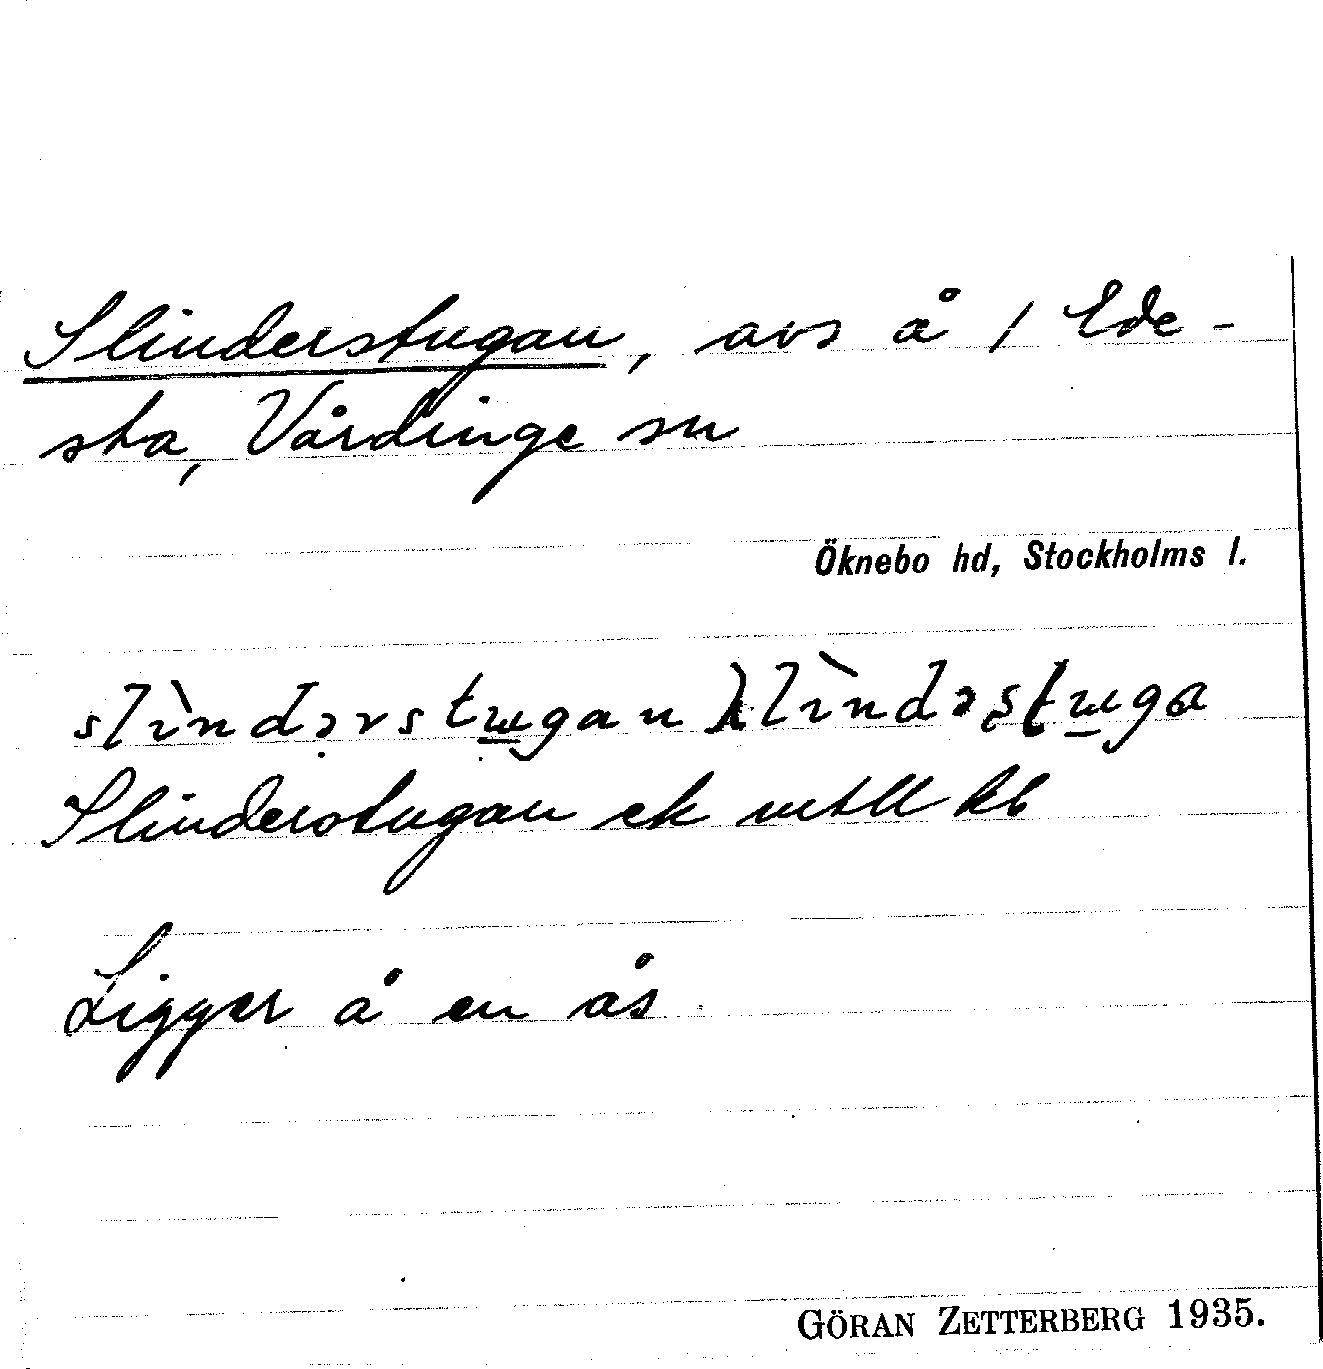 Slinderstugan, avs å / Ede-
sta, Vårdinge sn
Öknebo hd, Stockholms l.
slìndərstugan slìndəştuga
Slinderstugan ek
Ligger å en ås
GÖRAN ZETTERBERG 1935.